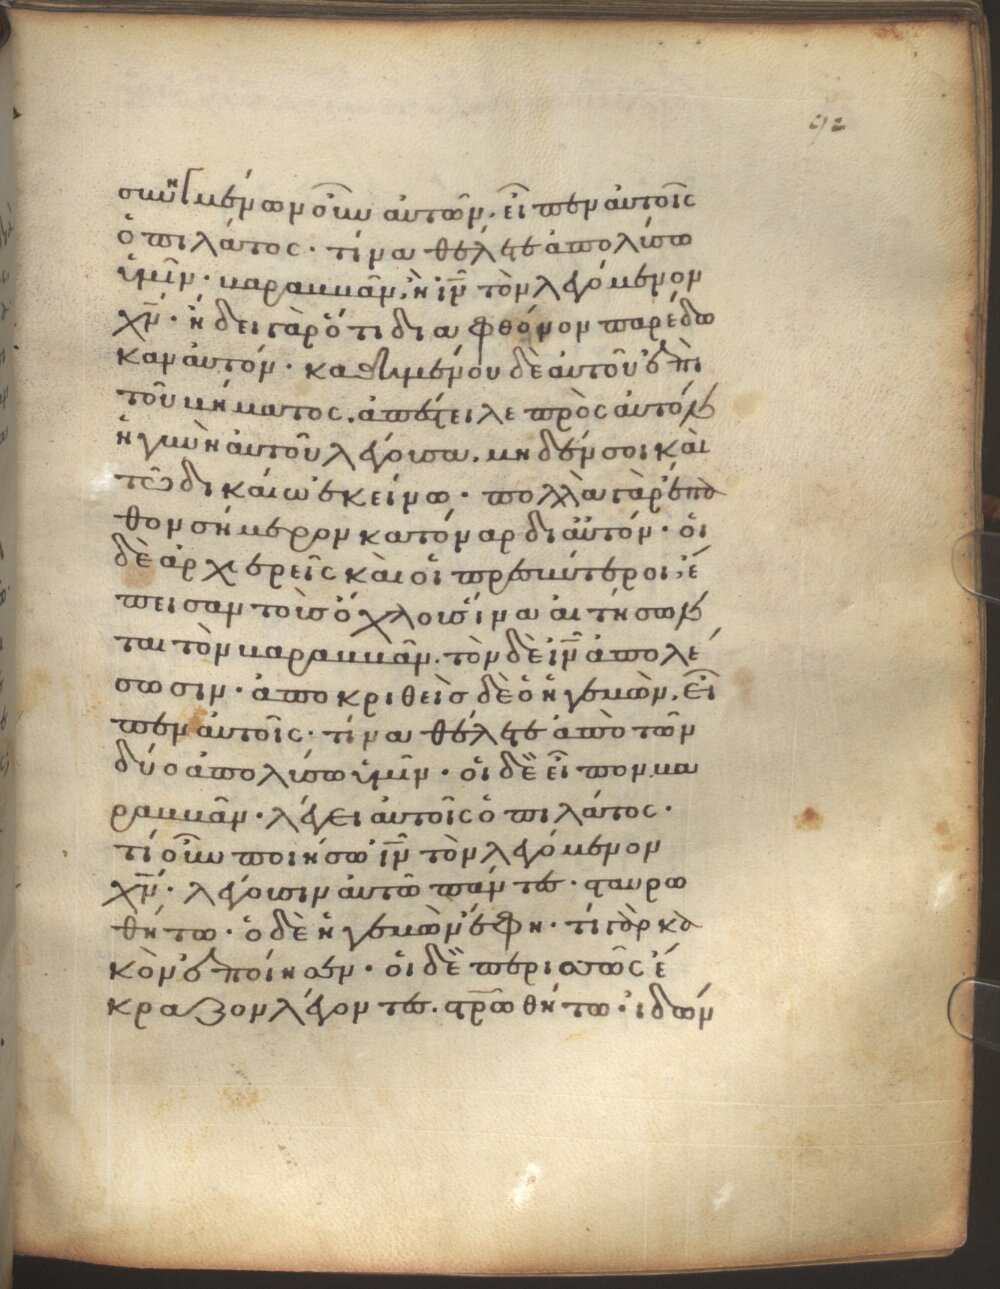 92
συνηγμένων οὖν αὐτῶν. εἶπεν αὐτοῖς
ὁ πιλάτος· τίνα θέλετε ἀπολύσω
ὑμῖν· βαραββᾶν, ἢ ἰν̅ τὸν λεγόμενον
χν̅· ἤδει γὰρ ὅτι δια φθόνον παρέδω
καν αὐτόν· καθημένου δὲ αὐτοῦ ἐπὶ
τοῦ βήματος. ἀπέστειλε πρὸς αὐτὸν
ἡ γυνὴ αὐτοῦ λέγουσα. μηδέν σοι καὶ
τῶ δικαίω ἐκείνω· πολλὰ γὰρ ἔπα
θον σήμερον κατ' ὄναρ δι αὐτόν· οἱ
δὲ ἀρχιερεῖς καὶ οἱ πρεσβύτεροι, ἔ
πεισαν τοὺς ὄχλους ἵνα αἰτήσων
ται τὸν βαραββᾶν. τὸν δὲ ἰν̅ ἀπολέ
σωσιν· ἀποκριθεὶς δὲ ὁ ἡγεμὼν. εἶ
πεν αὐτοῖς· τίνα θέλετε ἀπὸ τῶν
δύο ἀπολύσω ὑμῖν· οἱ δὲ εἶπον βα
ραββᾶν· λέγει αὐτοῖς ὁ πιλάτος·
τί οὖν ποιήσω ἰν̅ τὸν λεγόμενον
χν̅· λέγουσιν αὐτῶ πάντες· σταυρω
θήτω· ὁ δὲ ἡγεμὼν ἔφη· τί γὰρ κα
κὸν ἐποίησεν· οἱ δὲ περισσῶς ἔ
κραζον λέγοντες. στρ̅ωθήτω· ἰδὼν